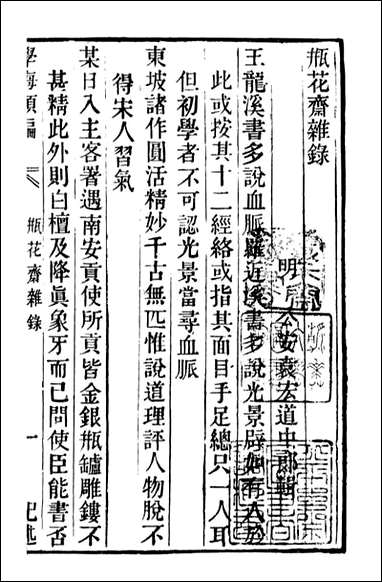 瓶花齋雜錄
明 公安袁宏道中郎輯
王龍溪書多說血脈羅近溪書多說光景辟如有人於
此或按其十二經絡或指其面目手足總只一人耳
但初學者不可認光景當尋血脈
東坡諸作圓活精妙千古無匹惟說道理評人物脫不
得宋人習氣
某日入主客署遇南安貢使所貢皆金銀瓶罏雕鏤不
甚精此外則白檀及降眞象牙而已問使臣能書否
學海類編 瓶花齋雜錄 一